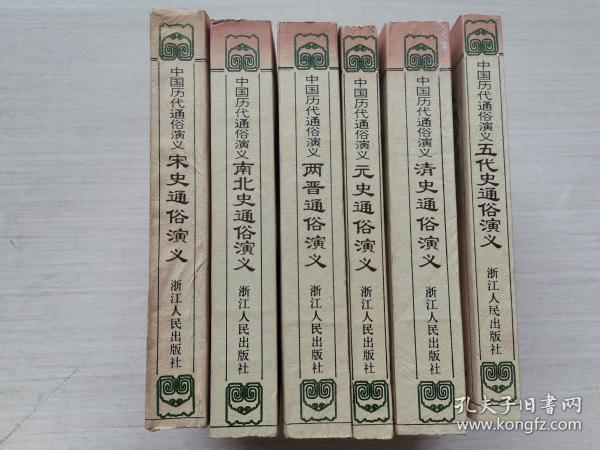 中国历代通俗演义
宋史通俗演义
浙江人民出版社
中国历代通俗演义
南北史通俗演义
浙江人民出版社
中国历代通俗演义
两晋通俗演义
浙江人民出版社
中国历代通俗演义
元史通俗演义
浙江人民出版社
中国历代通俗演义
清史通俗演义
浙江人民出版社
中国历代通俗演义
五代史通俗演义
浙江人民出版社
孔夫子旧书网
www.kongfz.com